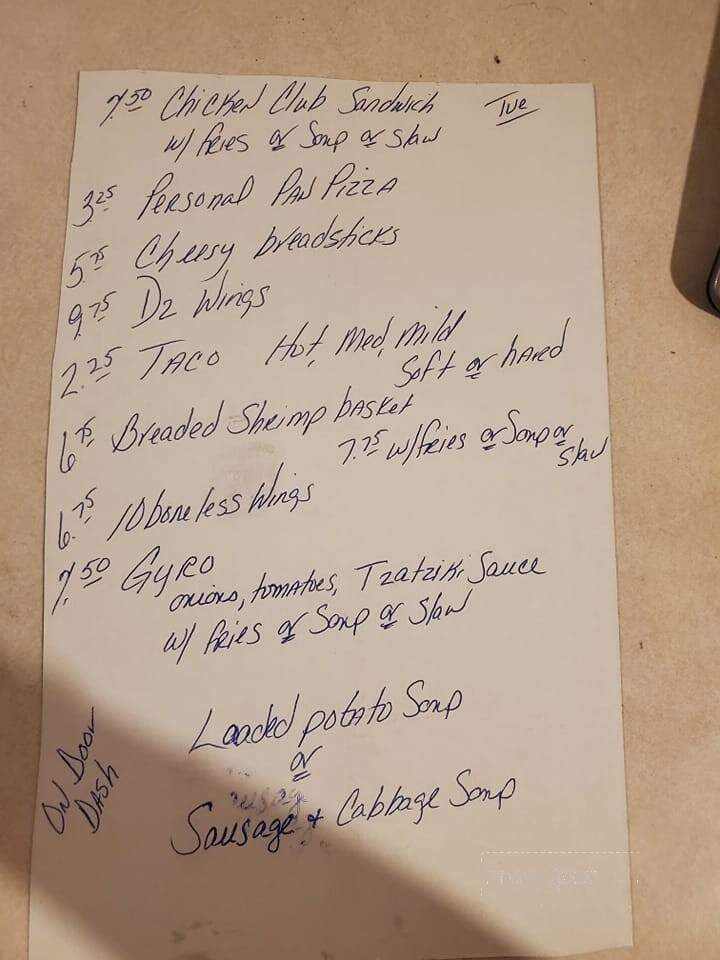 7.50 Chicken Club Sandwich Tue
w/ fries or Soup or Slaw
3.25 Personal Pan Pizza
5.75 Cheesy breadsticks
9.75 Dz Wings
2.25 Taco Hot, Med, Mild
Soft or hard
6.75 Breaded Shrimp basket
7.75 w/ fries or Soup or
Slaw
6.75 10 boneless Wings
7.50 Gyro
onions, tomatoes, Tzatziki Sauce
w/ fries or Soup or Slaw
Loaded potato Soup
or
Sausage + Cabbage Soup
On Door
Dash